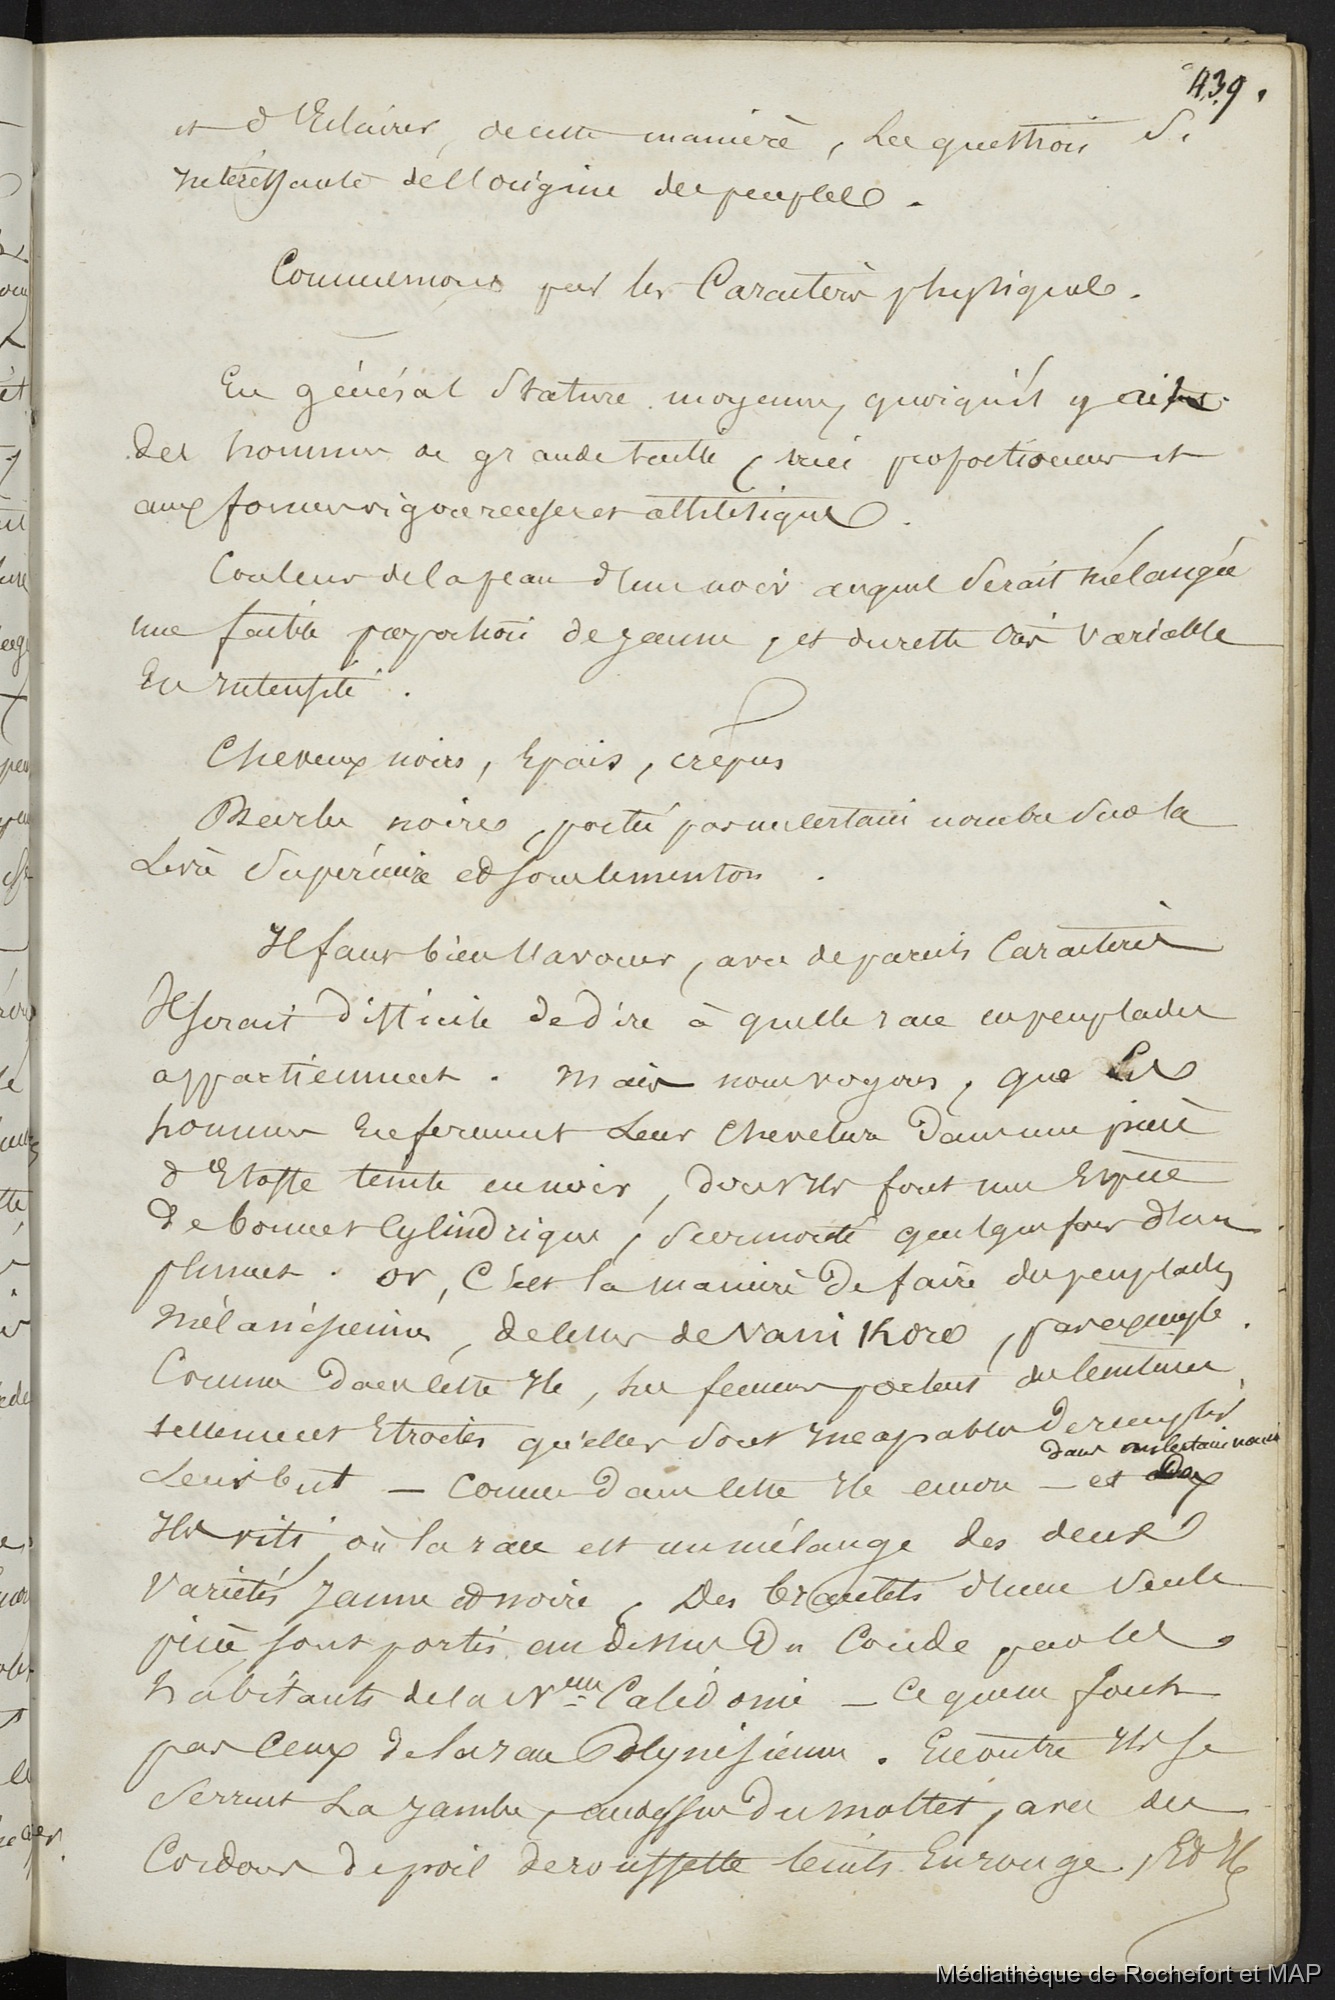 439.
et d'Eclairer, de cette manière, les questions si
intéressante de l'origine des peuples.
Commençons par les Caractères physiques.
En général stature moyenne, quoiqu'il y ait
des hommes de grande taille, bien proportionnés et
aux formes vigoureuses et athlétiques.
Couleur de la peau d'un noir auquel serait mélangée
une faible proportion de jaune, et du reste très variable
En intensité.
Cheveux noirs, Epais, crépus
Barbe noire, portée par un certain nombre sur la
Lèvre supérieure et sous le menton.
Il faut bien l'avouer, avec de pareils Caractères
Il serait difficile de dire à quelle race ces peuplades
appartiennent. Mais nous voyons, que les
hommes Enferment leur chevelure dans une pièce
d'Etoffe teinte en noir, dont ils font une Espèce
de bonnet Cylindrique, surmonté quelquefois d'un
plumet. Or, C'est la manière de faire des peuplades
Mélanésiennes, de celles de Vanikoro, par exemple.
Comme dans cette Ile, les femmes portent des ceintures
tellement Etroites qu'elles sont incapables de remplir
leur but — Comme dans cette Ile encore — et aux
dans un certain nombre
Iles viti où la race est un mélange des deux
Variétés jaune et noire, Des bracelets d'une seule
pièce sont portés au dessus du Coude par les
habitants de la Nelle Calédonie — Ce que ne font
pas Ceux de la race Polynésienne. En outre Ils se
serrent la jambe, au dessus du mollet, avec des
Cordons de poil de roussette teints En rouge, Et Ils
Médiathèque de Rochefort et MAP